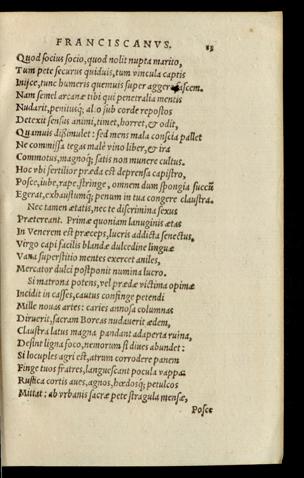 FRANCISCANVS. 13
Quod socius socio, quod nolit nupta marito,
Tum pete securus quiduis, tum vincula captis
Inijce, tunc humeris quemuis super aggere fascem.
Nam semel arcanæ tibi qui penetralia mentis
Nudarit, penitusq; alto sub corde repostos
Detexit sensus animi, timet, horret, & odit,
Quamuis dißimulet: sed mens mala conscia pallet
Ne commissa tegas malè vino liber, & ira
Commotus, magnoq; satis non munere cultus.
Hoc vbi fertilior præda est deprensa capistro,
Posce, iube, rape, stringe, omnem dum spongia succũ
Egerat, exhaustumq; penum in tua congere claustra.
Nec tamen ætatis, nec te discrimina sexus
Prætereant. Primæ quoniam lanuginis ætas
In Venerem est præceps, lucris addicta senectus,
Virgo capi facilis blandæ dulcedine linguæ
Vana superstitio mentes exercet aniles,
Mercator dulci postponit numina lucro.
Si matrona potens, vel prædæ victima opimæ
Incidit in casses, cautus confinge petendi
Mille nouas artes: caries annosa columnas
Diruerit, sacram Boreas nudauerit ædem,
Claustra latus magna pandant adaperta ruina,
Desint ligna foco, nemorum si diues abundet:
Si locuples agri est, atrum corrodere panem
Finge tuos fratres, languescant pocula vappa.
Rustica cortis aues, agnos, hœdosq; petulcos
Mittat: ab vrbanis sacræ pete stragula mensæ,
Posce